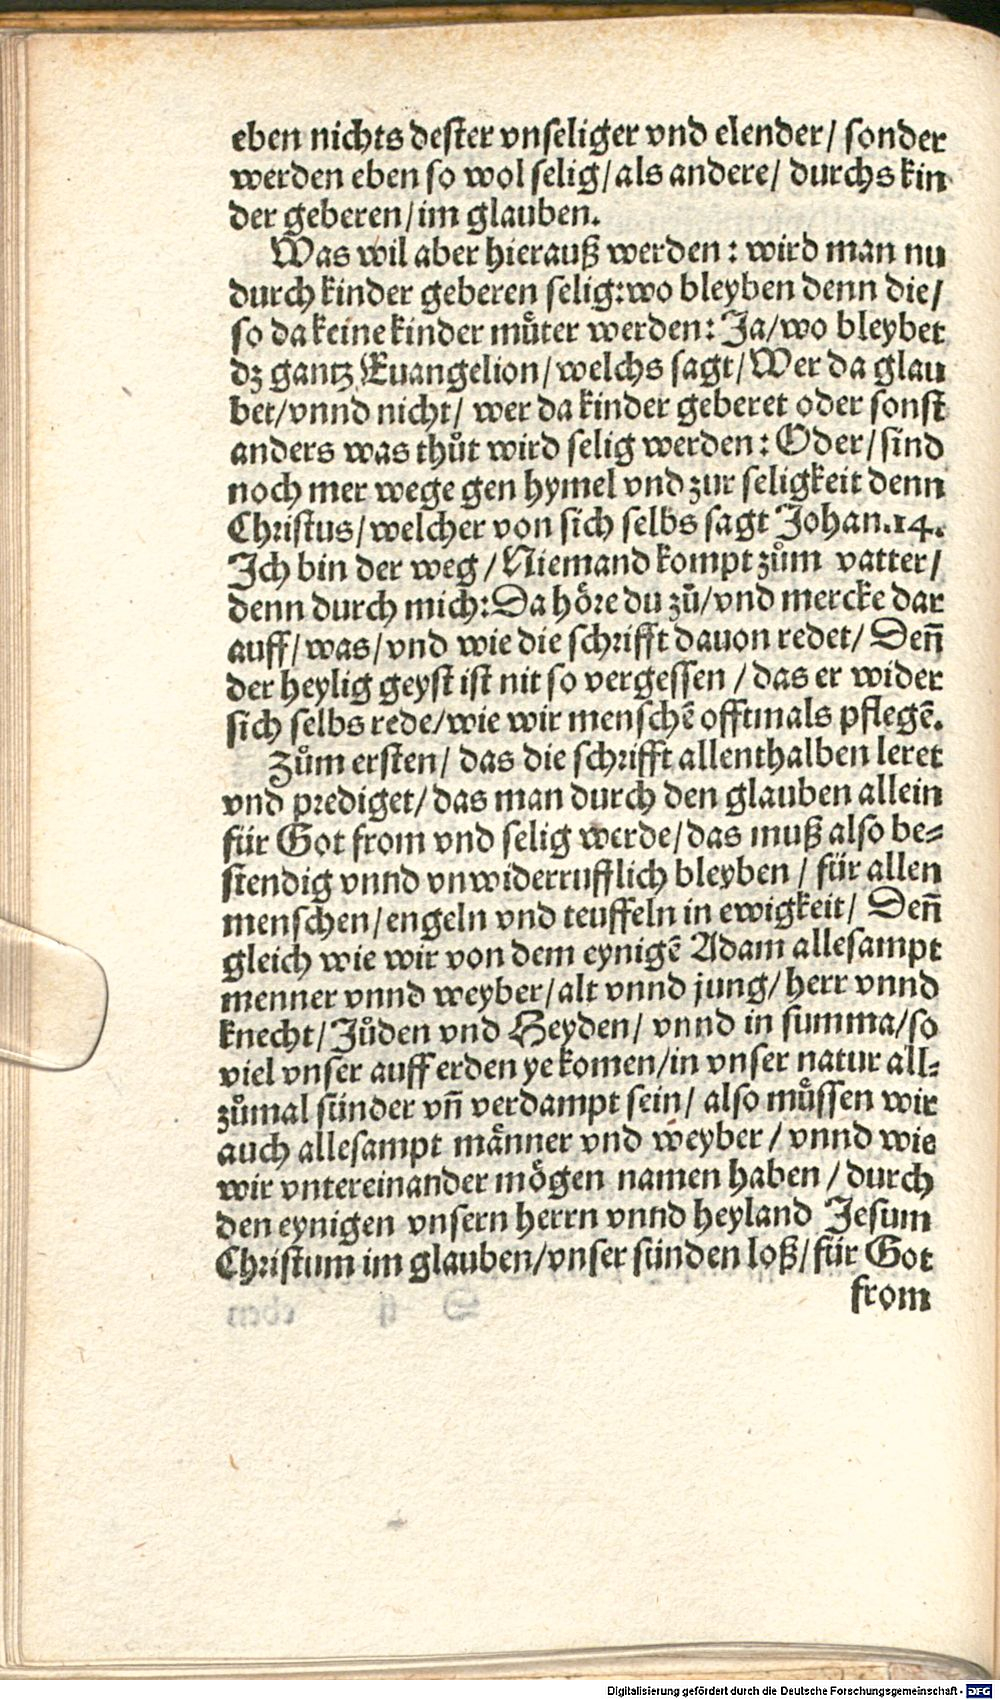 eben nichts dester vnseliger vnd elender/ sonder
werden eben so wol selig/ als andere/ durchs kin
der geberen/ im glauben.
Was wil aber hierauß werden: wird man nu
durch kinder geberen selig: wo bleyben denn die/
so da keine kinder muͤter werden: Ja/ wo bleybet
dz gantz Euangelion/ welchs sagt/ Wer da glau
bet/ vnnd nicht/ wer da kinder geberet oder sonst
anders was thuͦt wird selig werden: Oder/ sind
noch mer wege gen hymel vnd zur seligkeit denn
Christus/ welcher von sich selbs sagt Johan.14.
Ich bin der weg/ Niemand kompt zuͦm vatter/
denn durch mich: Da hoͤre du zuͦ/ vnd mercke dar
auff/ was/ vnd wie die schrifft dauon redet/ Den̄
der heylig geyst ist nit so vergessen/ das er wider
sich selbs rede/ wie wir menschē offtmals pflegē.
Zuͦm ersten/ das die schrifft allenthalben leret
vnd prediget/ das man durch den glauben allein
für Got from vnd selig werde/ das muß also be⸗
stendig vnnd vnwiderrufflich bleyben/ für allen
menschen/ engeln vnd teuffeln in ewigkeit/ Den̄
gleich wie wir von dem eynigē Adam allesampt
menner vnnd weyber/ alt vnnd jung/ herr vnnd
knecht/ Juͦden vnd Heyden/ vnnd in summa/ so
viel vnser auff erden ye komen/ in vnser natur all⸗
zuͦmal sünder vn̄ verdampt sein/ also muͤssen wir
auch allesampt maͤnner vnd weyber/ vnnd wie
wir vntereinander moͤgen namen haben/ durch
den eynigen vnsern herrn vnnd heyland Jesum
Christum im glauben/ vnser sünden loß/ für Got
from
Digitalisierung gefördert durch die Deutsche Forschungsgemeinschaft - DFG